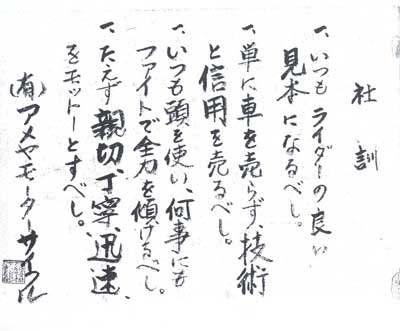 社訓
一、いつもライダーの良い
見本になるべし。
一、単に車を売らず、技術
と信用を売るべし。
一、いつも頭を使い、何事にも
ファイトで全力を傾けるべし。
一、たえず親切、丁寧、迅速、
をモットーとすべし。
(有)アメヤモーターサイクル